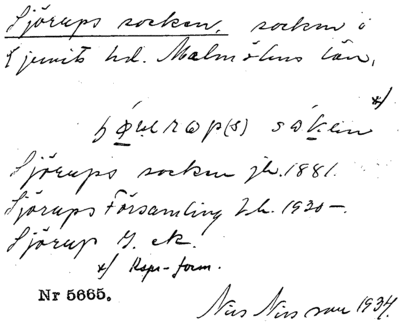 Sjörups socken, socken i
Ljunits hd. Malmöhus län,
*)
Sjörups socken jb. 1881.
Sjörups Församling Lb. 1920–.
Sjörup G. ek.
*) Rspr-form.
Nr 5665.
Nils Nilsson 1934.